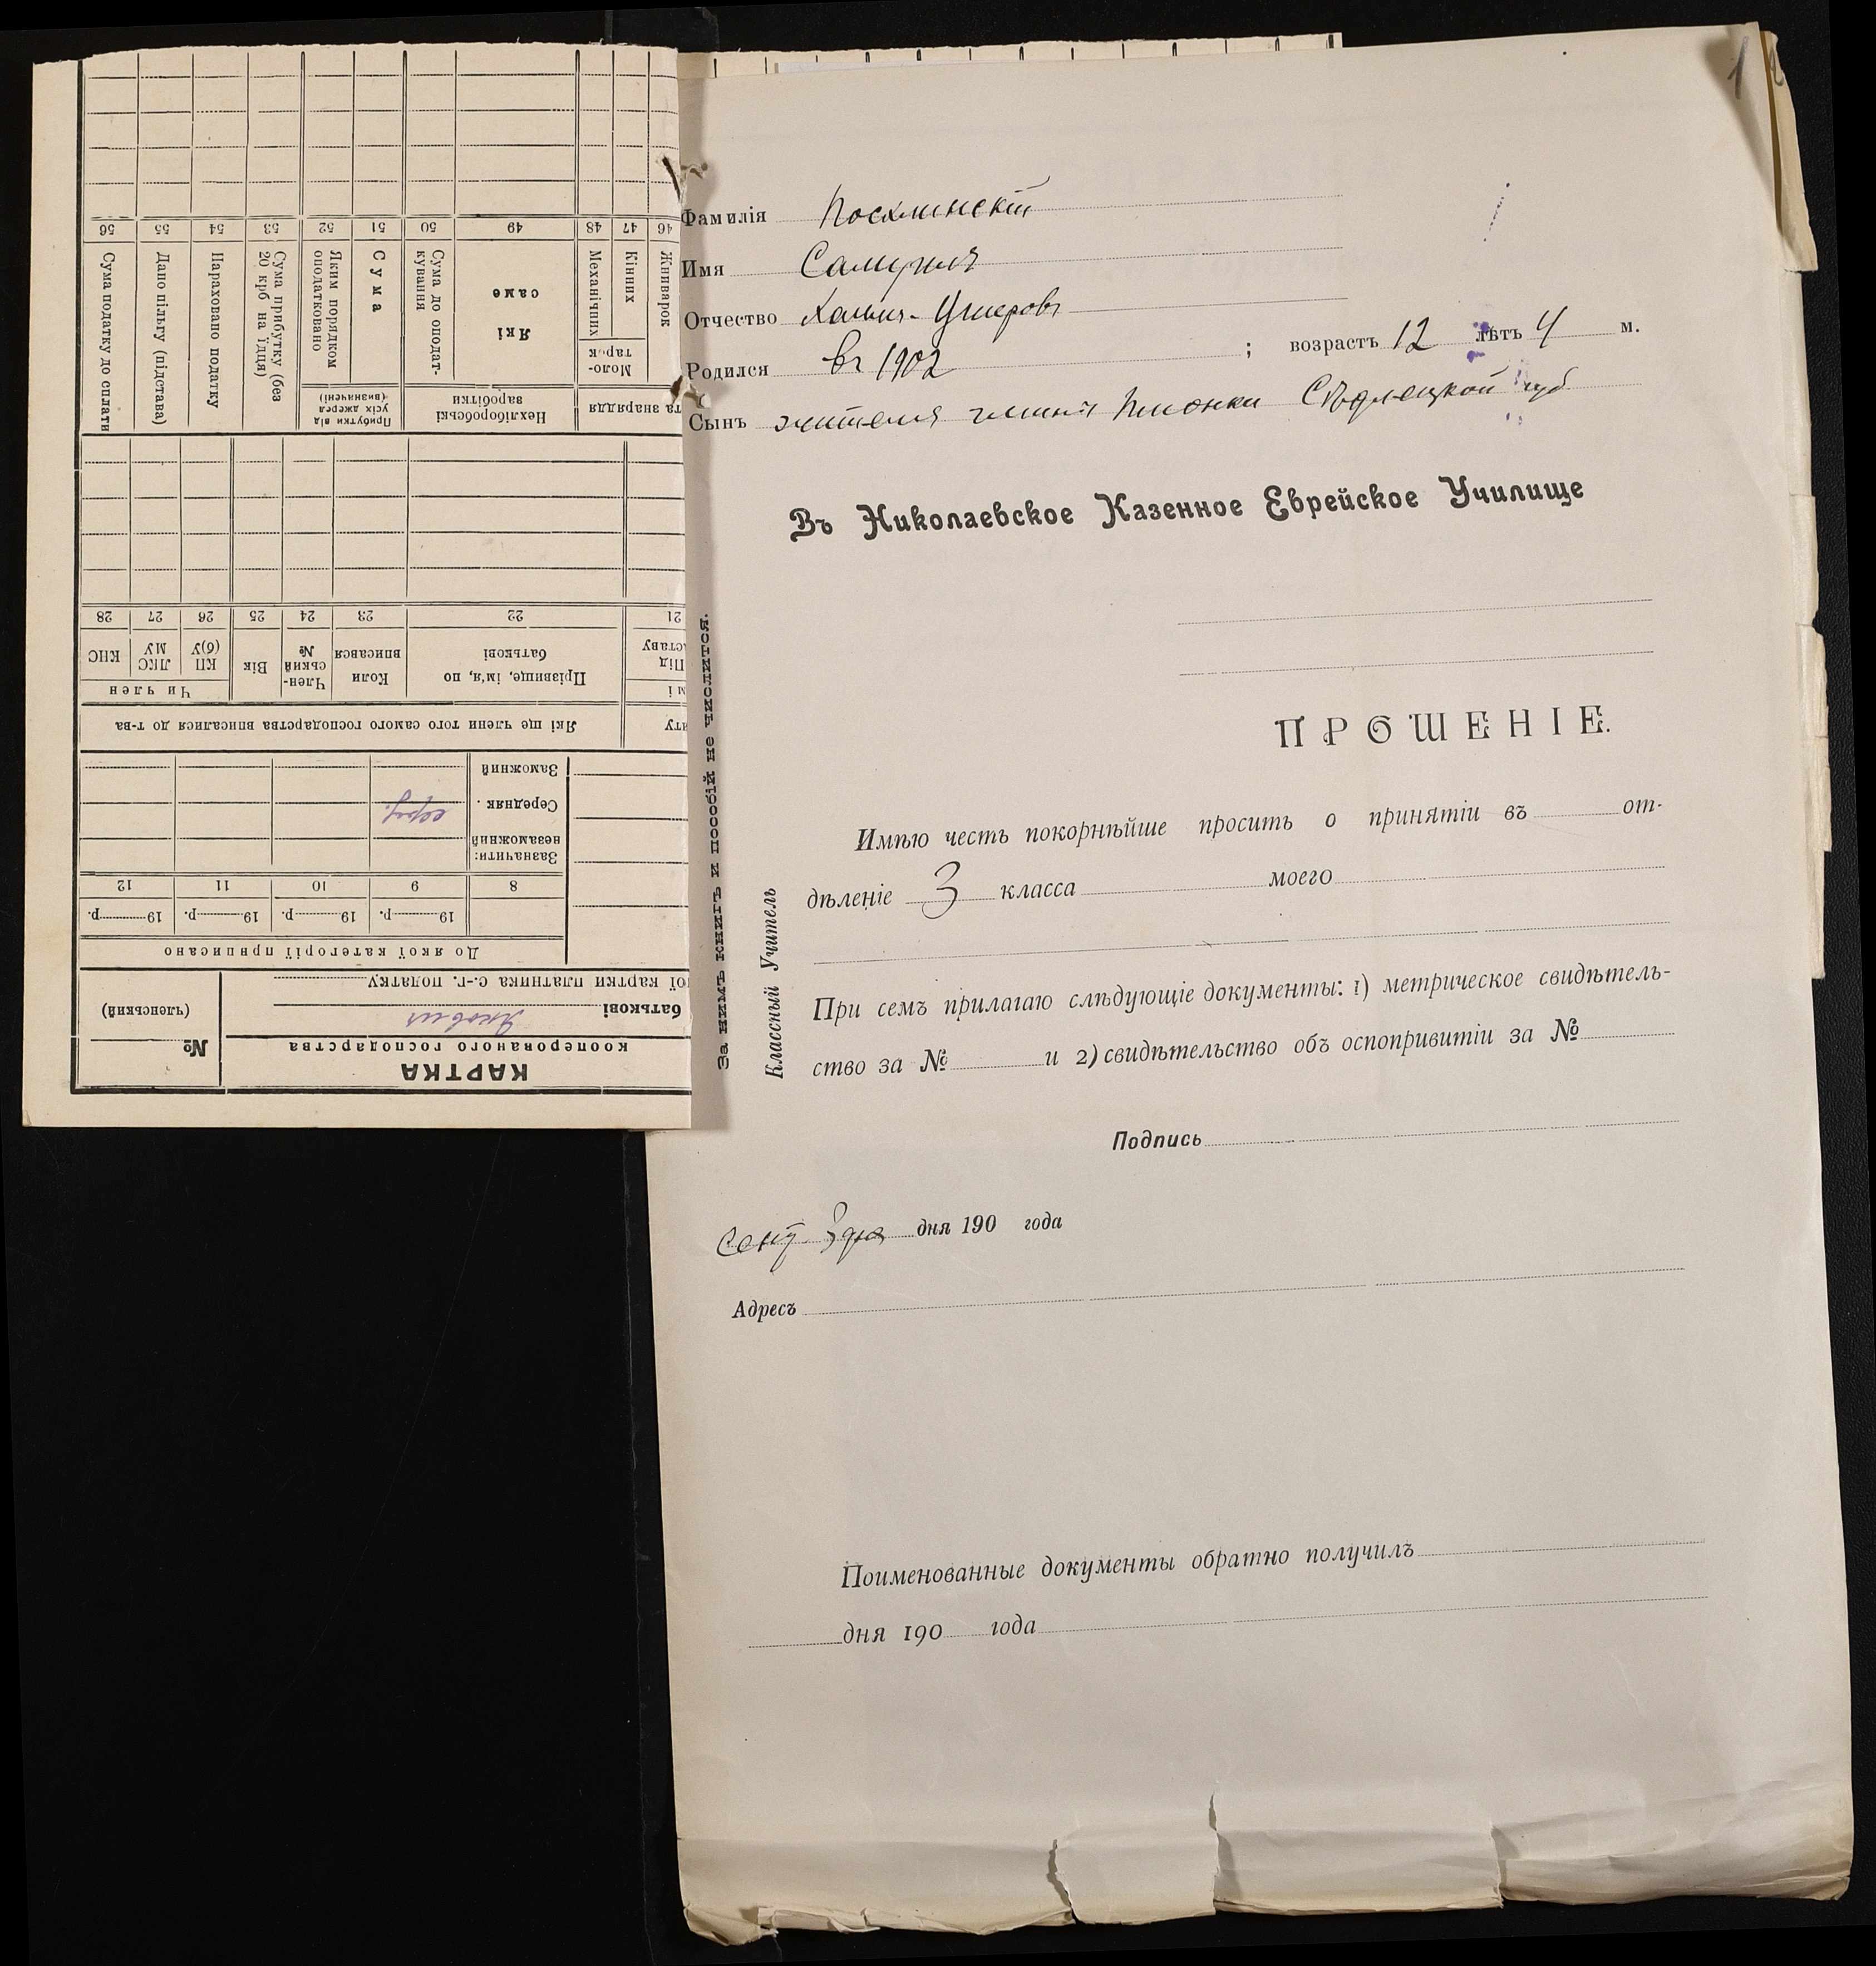 1
Фамилія Посхлинскій
Имя Самуилъ
Отчество Хаимъ-Ушеровъ
Родился въ 1902 ; возрастъ 12 лѣтъ 4 м.
Сынъ жителя гмины Сѣдлецкой губ
Въ Николаевское Казенное Еврейское Училище
ПРОШЕНІЕ.
Имѣю честь покорнѣйше просить о принятіи въ от-
дѣленіе 3 класса моего
При семъ прилагаю слѣдующіе документы: 1) метрическое свидѣтель-
ство за № и 2) свидѣтельство объ оспопривитіи за №
Подпись
Сент. 3 дня дня 190 года
Адресъ
Поименованные документы обратно получилъ
дня 190 года
За нимъ книгъ и пособій не числится.
Классный Учитель
КАРТКА
кооперованого господарства
№
(членський)
батькові Яковлів
ої картки платника с.-г. податку
До якої категорії приписано
19 р. 19 р. 19 р. 19 р.
8 9 10 11 12
Зазначити:
незаможний
Середняк серед.
Заможний
Які ще члени того самого господарства вписалися до т-ва
Чи член
Прізвище, ім'я, по батькові
Коли вписався
Член-ський №
Вік
КП(б)У
ЛКСМУ
КНС
21 22 23 24 25 26 27 28
та знаряддя
Нехліборобські заробітки
Прибутки від усіх джерел (визначені)
Жниварок
Кінних
Механічних
Моло-тарок
Які саме
Сума до оподат-кування
Сума
Яким порядком оподатковано
Сума прибутку (без 20 крб на їдця)
Параховано податку
Дано пільгу (підстава)
Сума податку до сплати
46 47 48 49 50 51 52 53 54 55 56